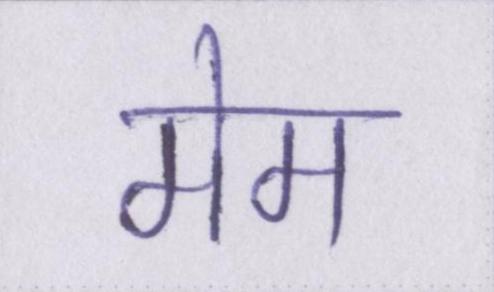 मेम